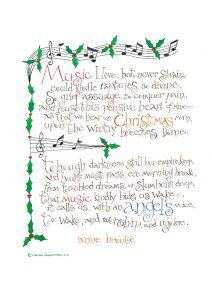 Music I love, but never strain
could kindle raptures so divine,
so grief assuage, so conquer pain,
and rouse this pensive heart of mine
as that we hear on Christmas morn,
upon the wintry breezes borne.
Though darkness still her empire keep,
and hours must pass, ere morning break,
from troubled dreams, or slumbers deep,
that music kindly bids us wake
it calls us, with an angel's voice
to wake, and worship, and rejoice.
anne bronte